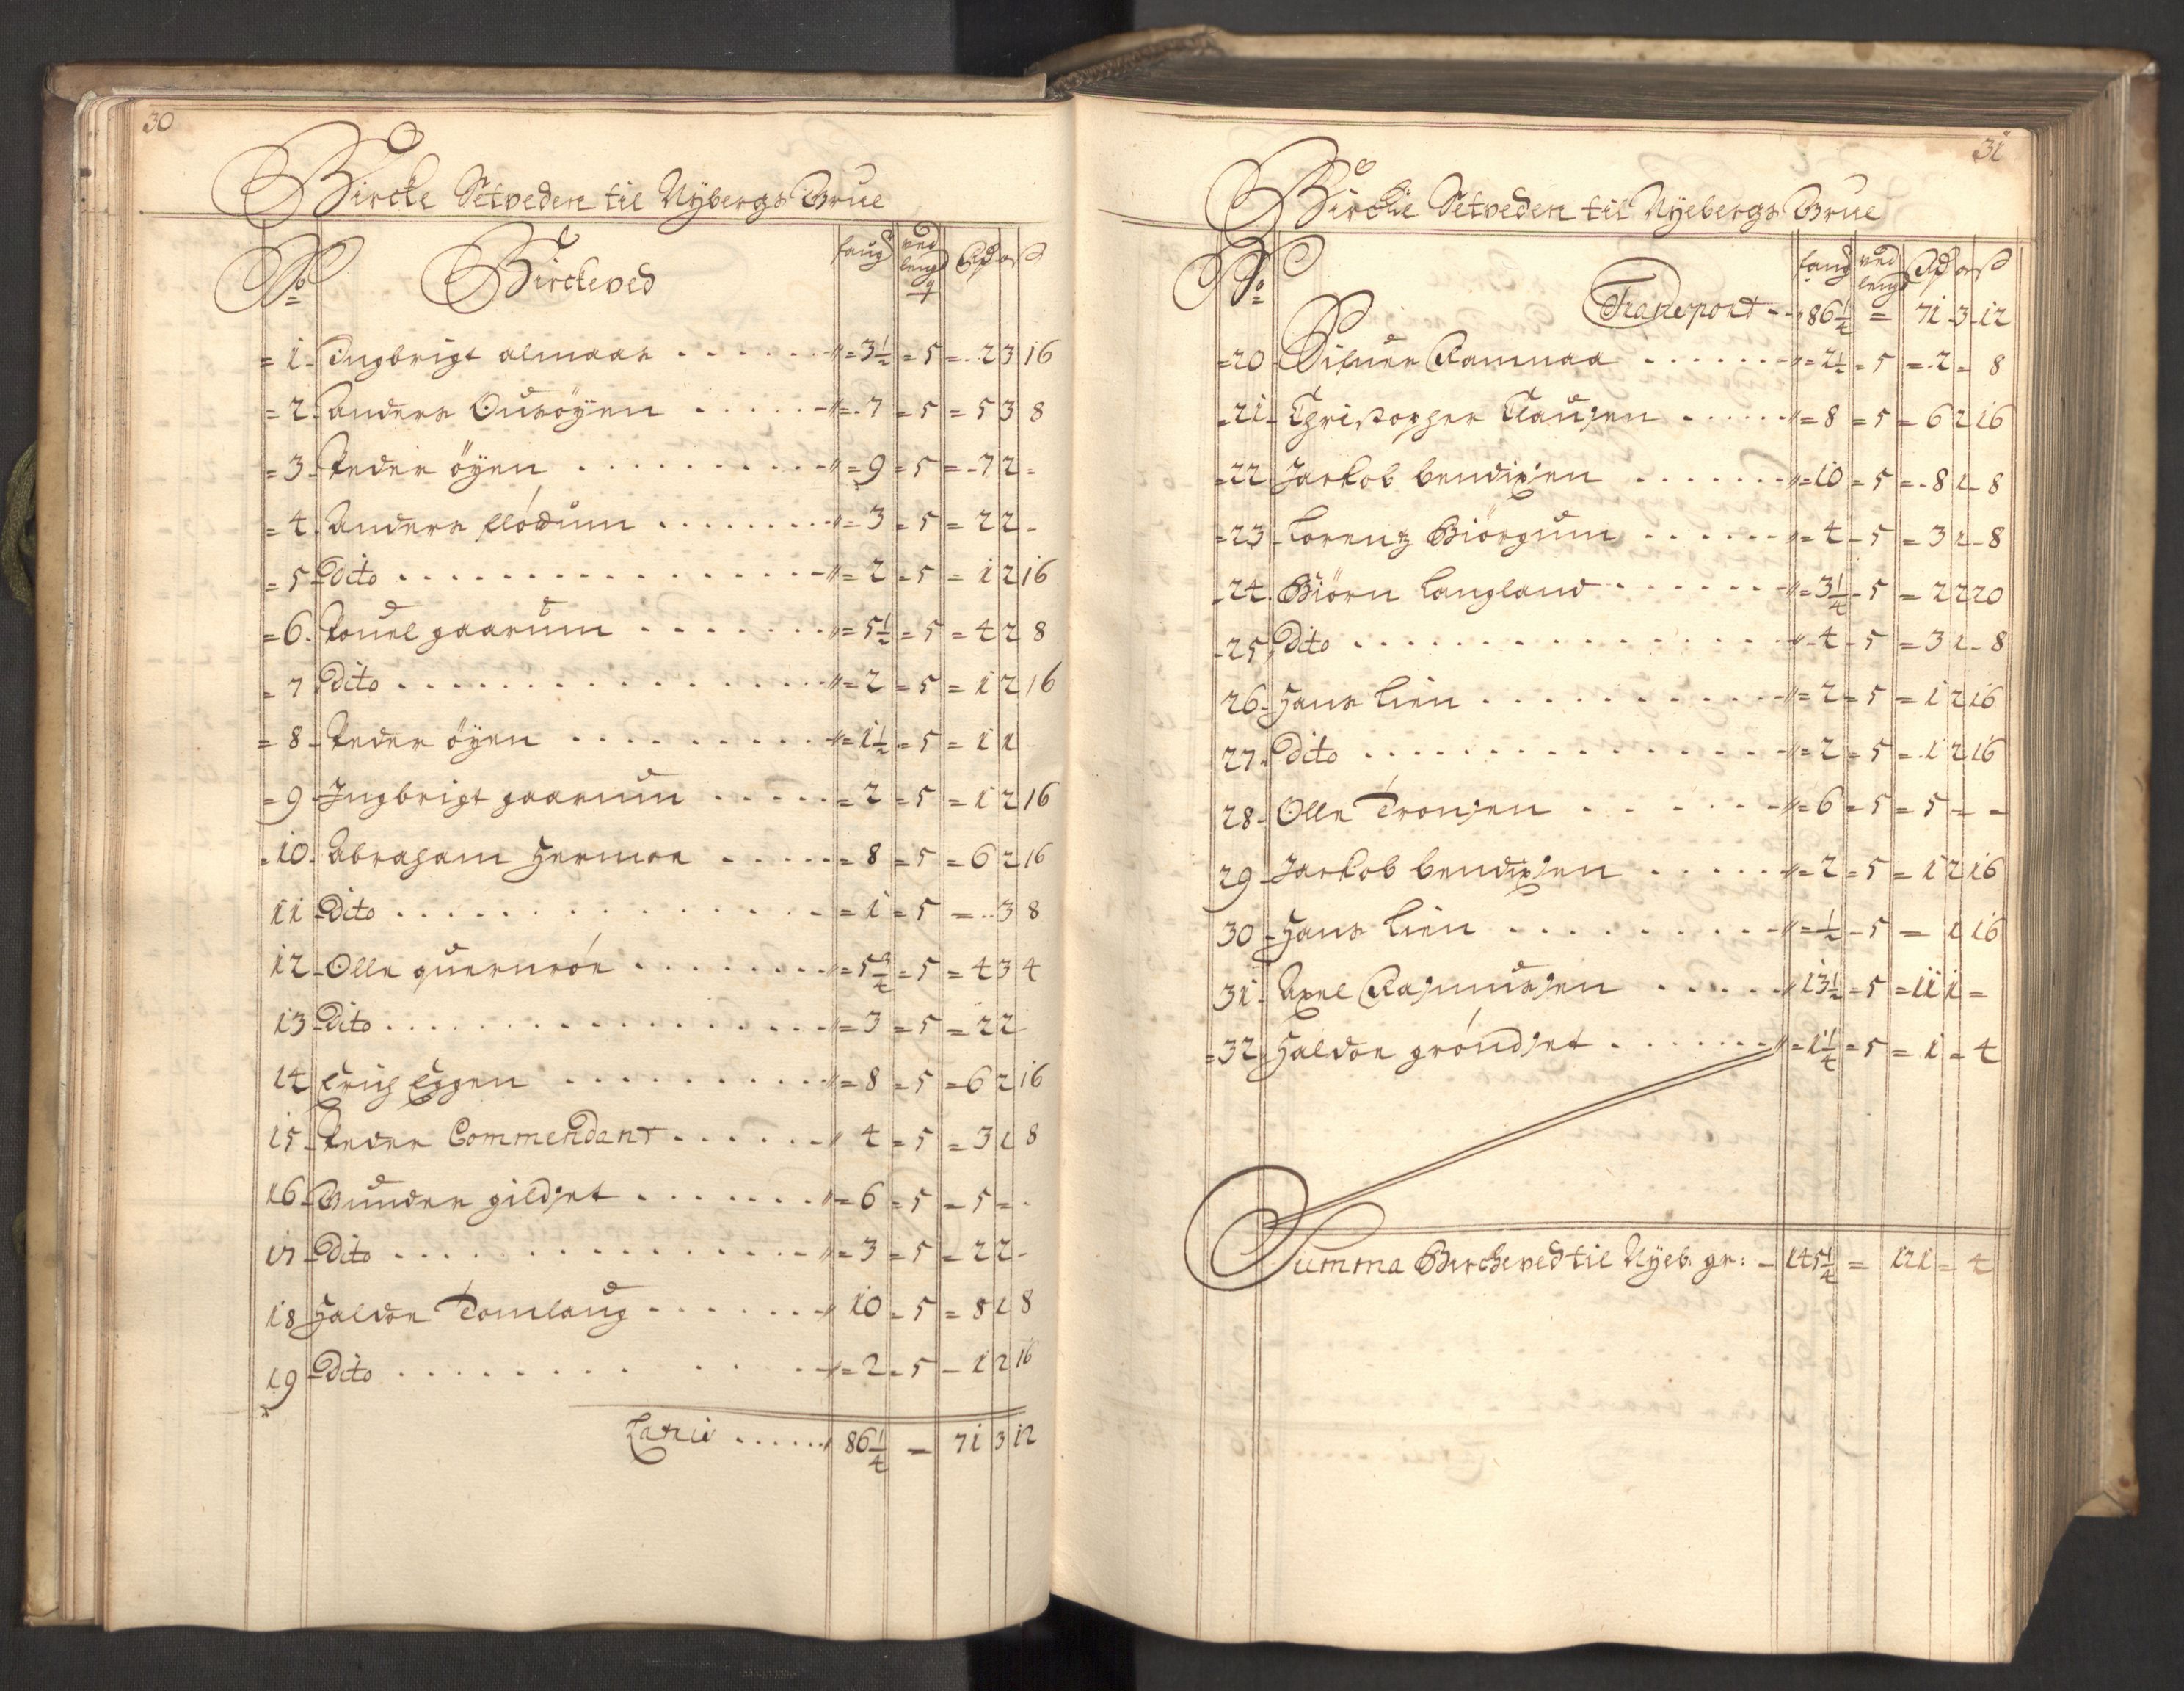 30
Bircke Setveden til Nÿbergs Grue
No Birckeved faug ved lengd Rdr ort ß
4
= 1 - Ingbrigt almaas ...... " = 3 1/2 = 5 = 2 3 16
= 2 - Anders Ousöÿen ...... " = 7 = 5 = 5 3 8
= 3 - Peder öÿen ...... " = 9 = 5 = 7 2 -
= 4 - Anders flódum ...... " = 3 = 5 = 2 2 -
= 5 - Dito ...... " = 2 = 5 = 1 2 16
= 6 - Pouel gaarum ...... " = 5 1/2 = 5 = 4 2 8
= 7 - Dito ...... " = 2 = 5 = 1 2 16
= 8 - Peder öÿen ...... " = 1 1/2 = 5 = 1 1
= 9 - Ingbrigt gaarum ...... = 2 = 5 = 1 2 16
= 10 - Abraham Hermoe ...... = 8 = 5 = 6 2 16
11 - Dito ...... = 1 = 5 = 3 8
12 - Olle quernróe ...... " = 5 3/4 = 5 = 4 3 4
13 - Dito ...... " = 3 = 5 = 2 2 -
14 Erich Eggen ...... " = 8 = 5 = 6 2 16
15 - Peder Commendant ...... " 4 = 5 = 3 1 8
16 - Gunder gildset ...... " = 6 = 5 = 5 = -
17 - Dito ...... " = 3 = 5 = 2 2 -
18 Haldoe Tomlaug ...... " 10 = 5 = 8 1 8
19 - Dito ...... " = 2 = 5 - 1 2 16
Latrie ...... " 86 1/4 = 71 3 12
31
Bircke Setveden til Nÿebergs Grue
No faug ved lengd Rdr ort ß
Transport - " 86 1/4 = 71 - 3 - 12
= 20 - Sifuer Ramnaa ...... " = 2 1/2 = 5 = 2 = 8
= 21 - Christopher Clausen ...... " = 8 = 5 = 6 2 16
= 22 - Jackob bendixsen ...... " = 10 = 5 = 8 1 - 8
= 23 - Lorentz Biörgum ...... " = 4 - 5 = 3 1 - 8
= 24 - Biörn Langland ...... " = 3 1/4 - 5 = 2 2 20
- 25 Dito ...... " - 4 - 5 = 3 1 - 8
26 - Hans Lien ...... " = 2 = 5 = 1 2 16
27 - Dito ...... " = 2 = 5 = 1 2 16
28 - Olle Tronsen ...... " = 6 = 5 = 5 = -
29 - Jackob bendixsen ...... " = 2 = 5 = 1 2 16
30 - Hans Lien ...... " = 1/2 - 5 = 1 16
31 - Axel Rasmussen ...... " 13 1/2 - 5 = 11 1 =
= 32 - Haldoe gróndset ...... " = 1 1/4 = 5 = 1 = 4
Summa Birckeved til Nÿeb: gr: - 145 1/4 = 121 = 4